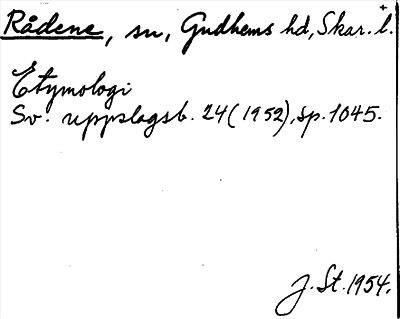 Rådene, sn, Gudhems hd, Skar. l.
Etymologi
Sv. uppslagsb. 24 (1952), sp. 1045.
J. St. 1954.